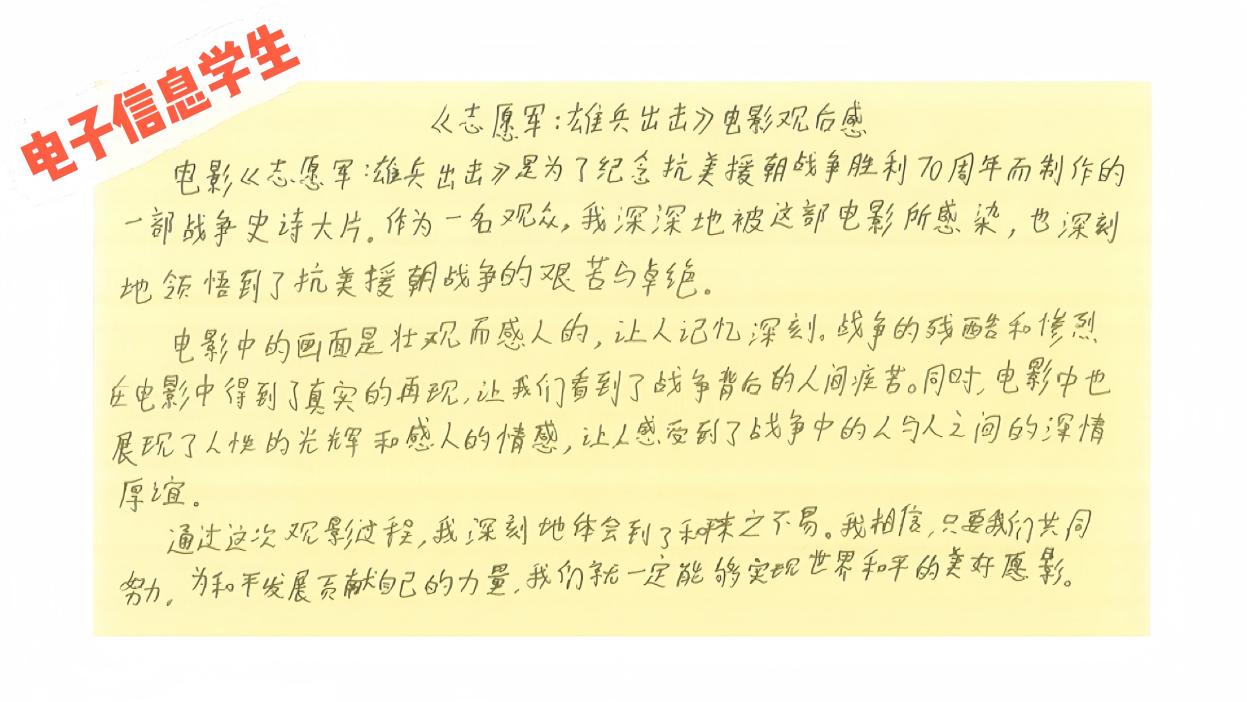 电子信息学生
《志愿军:雄兵出击》电影观后感
电影《志愿军:雄兵出击》是为了纪念抗美援朝战争胜利70周年而制作的
一部战争史诗大片。作为一名观众,我深深地被这部电影所感染,也深刻
地领悟到了抗美援朝战争的艰苦与卓绝。
电影中的画面是壮观而感人的,让人记忆深刻。战争的残酷和惨烈
在电影中得到了真实的再现,让我们看到了战争背后的人间疾苦。同时,电影中也
展现了人性的光辉和感人的情感,让人感受到了战争中的人与人之间的深情
厚谊。
通过这次观影过程,我深刻地体会到了和来之不易。我相信,只要我们共同
努力,为和平发展贡献自己的力量,我们就一定能够实现世界和平的美好愿影。